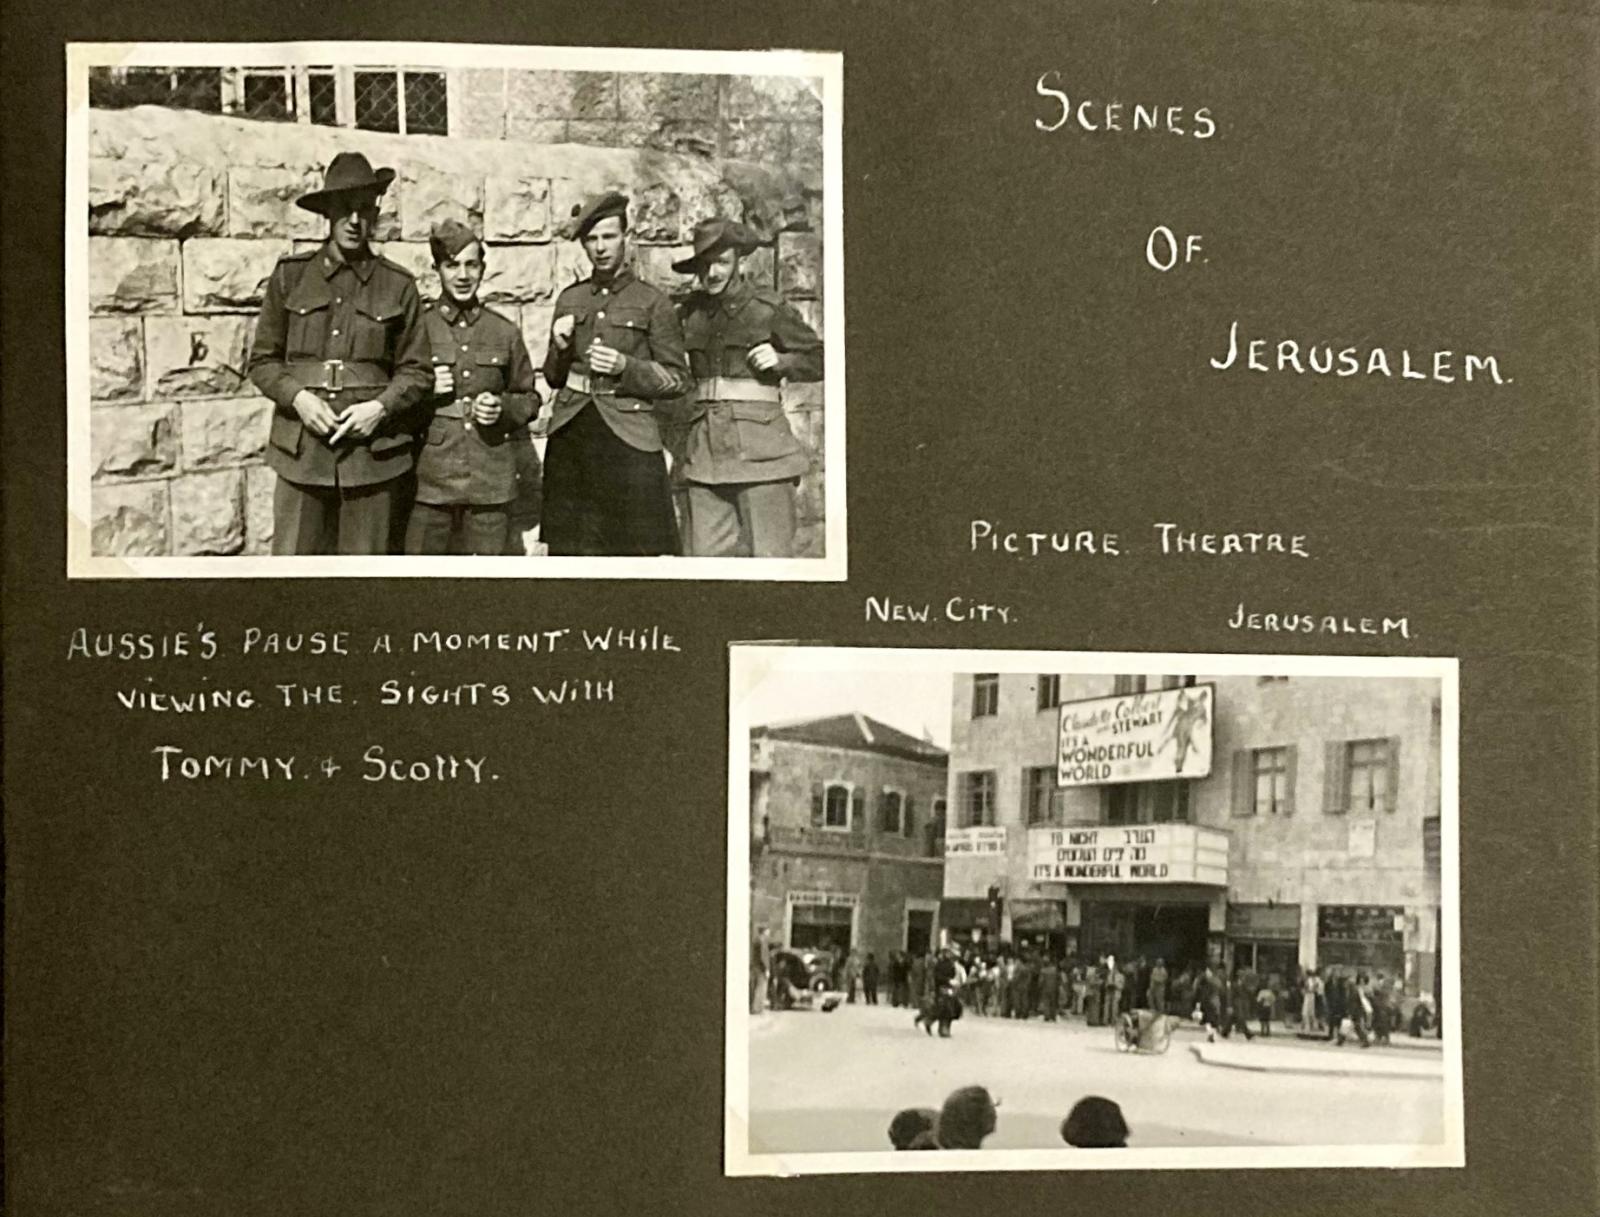 SCENES
OF.
JERUSALEM.
AUSSIE'S PAUSE A MOMENT WHILE
VIEWING THE. SIGHTS WITH
TOMMY. & SCOTTY.
PICTURE. THEATRE
NEW. CITY. JERUSALEM.
Claudette Colbert
STEWART
IT'S A
WONDERFUL
WORLD
TO NIGHT הערב
IT'S A WONDERFUL WORLD